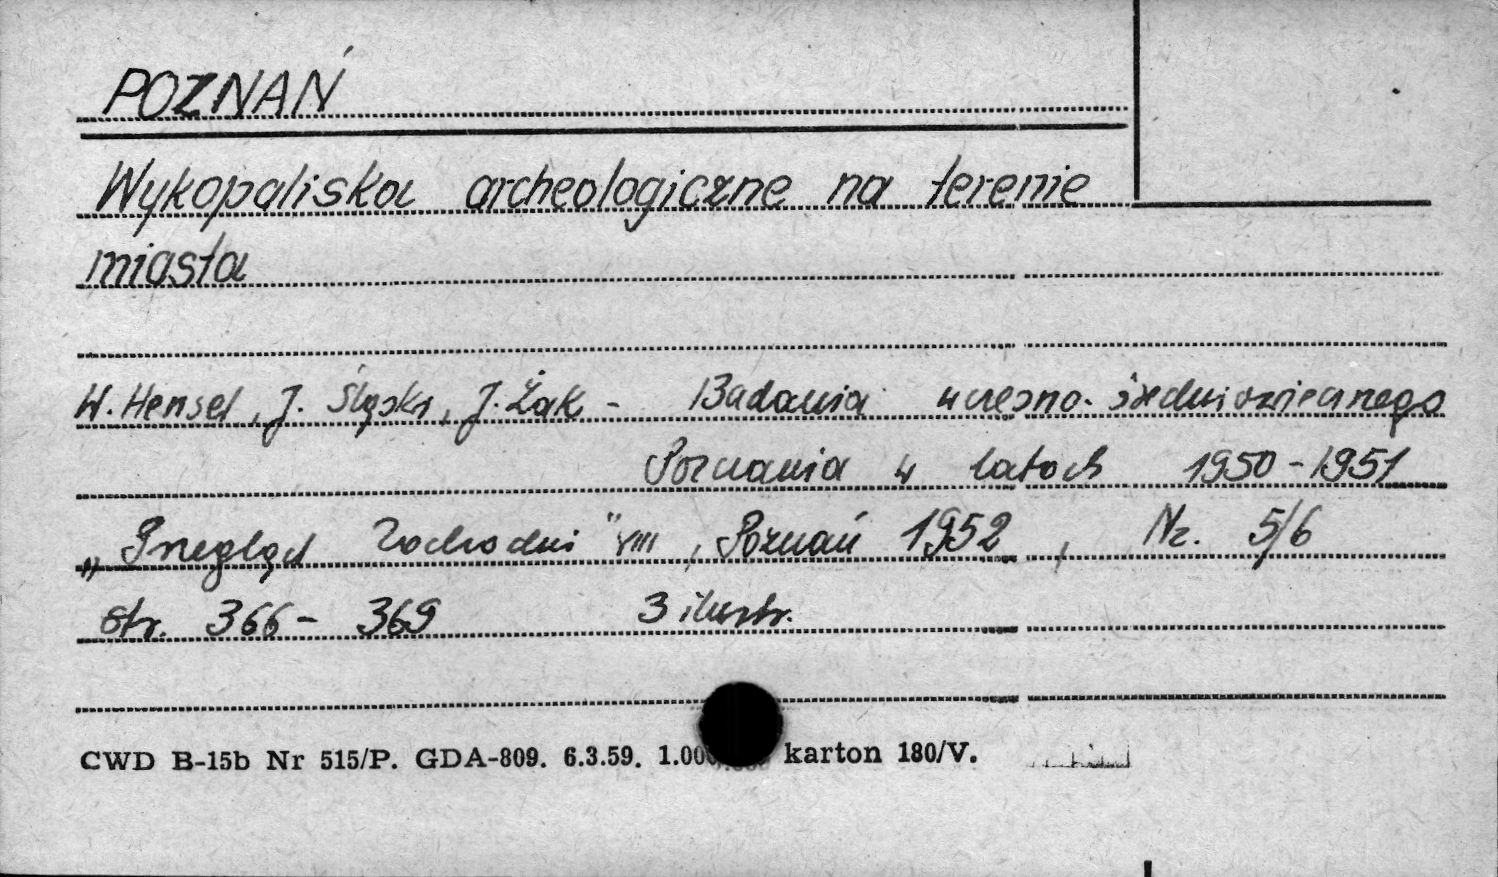 POZNAŃ
Wykopaliska archeologiczne na terenie
miasta
W. Hensel, J. Śląski, J. Żak - Badania wczesno-średniowiecznego
Poznania w latach 1950-1951
„Przegląd Zachodni" VIII, Poznań 1952, Nr. 5/6
str. 366-369 3 ilustr.
CWD B-15b Nr 515/P. GDA-809. 6.3.59. karton 180/V.